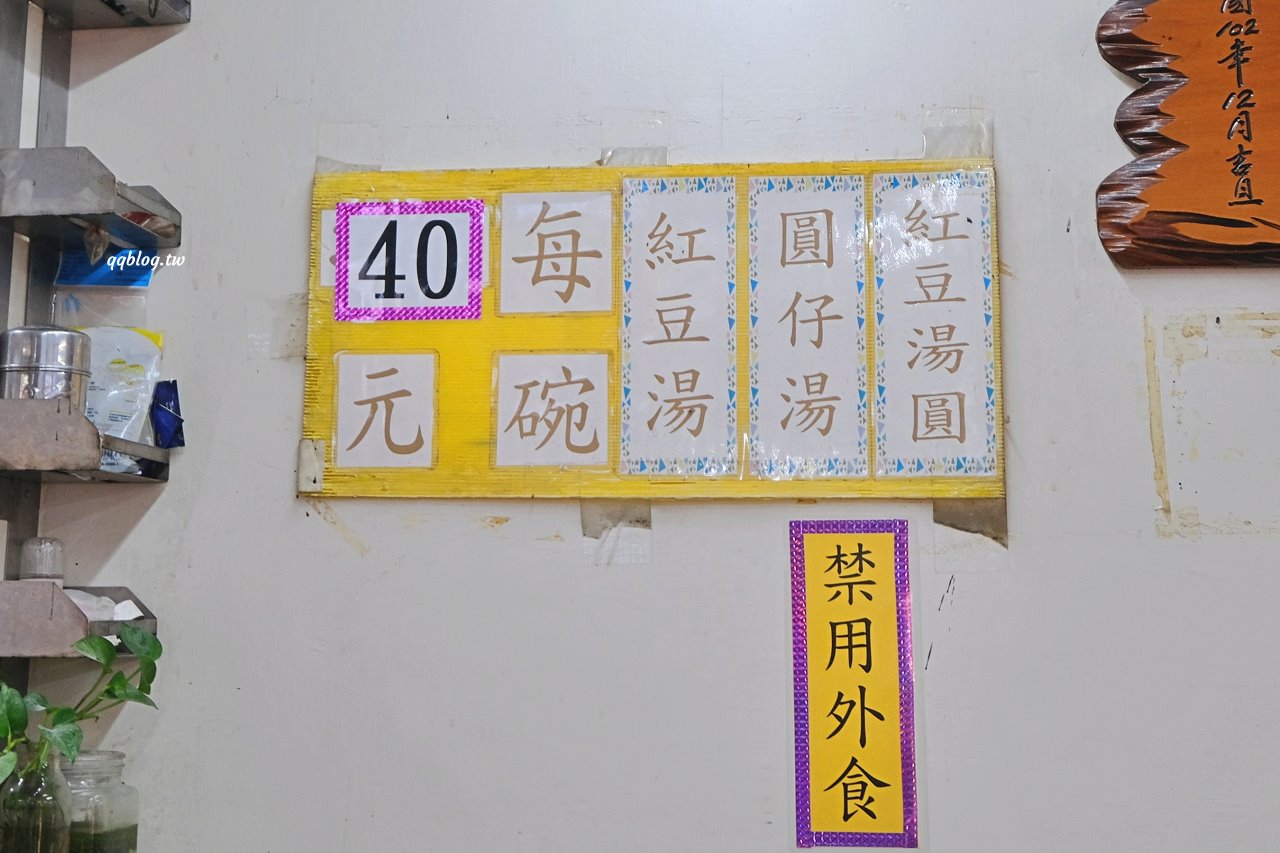 紅豆湯圓
圓仔湯
紅豆湯
每碗
40元
禁用外食
102年12月吉旦
qqblog.tw